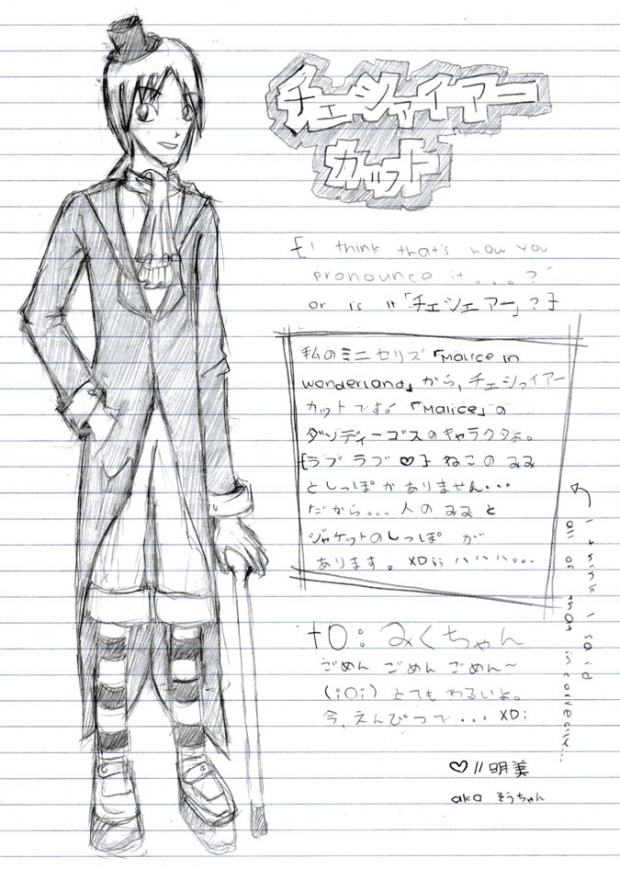 チェシャイアー
カット
{"I think that's how you
pronounce it....?"
or is it「チェシェアー」?}
私のミニセリズ「Malice in
wonderland」から, チェシャイアー
カットです!「Malice」の
ダンディーゴスのキャラクタよ。
{ラブラブ♡} ねこのみみ
としっぽがありません...
だから... 人のみみと
ジャケットのしっぽ が
あります。XD;; ハハハ...
I think I said
all of that is correctly...
to: みくちゃん
ごめん ごめん ごめん~
(;O;) とてもわるいよ。
今, えんぴつで... XD;
♡//明美
aka そうちゃん